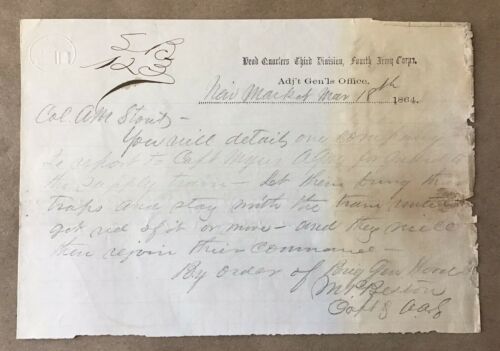 5 B
123
Head Quarters Third Division, Fourth Army Corps,
Adj't Gen'ls Office.
New Market Mar 18th 1864.
Col AM Stout –
You will detail one
to report to Capt Myers
the supply train – let them bring
traps and stay with the train
got rid of it or more – and they will
then rejoin their command –
By order of Brig Gen Wood
M P Bestow
Capt & AAG